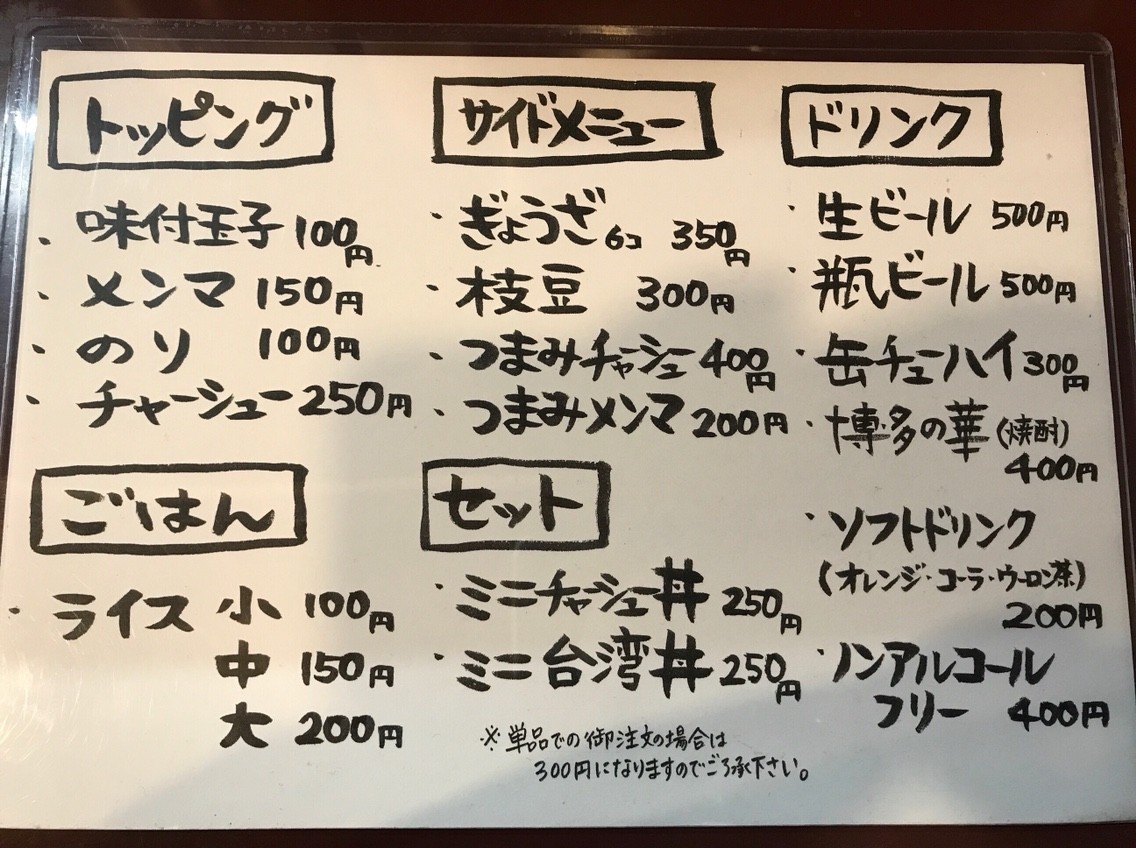 トッピング
・味付玉子 100円
・メンマ 150円
・のり 100円
・チャーシュー 250円
サイドメニュー
・ぎょうざ 6コ 350円
・枝豆 300円
・つまみチャーシュー 400円
・つまみメンマ 200円
ドリンク
・生ビール 500円
・瓶ビール 500円
・缶チューハイ 300円
・博多の華(焼酎)
400円
・ソフトドリンク
(オレンジ・コーラ・ウーロン茶)
200円
・ノンアルコール
フリー 400円
ごはん
・ライス 小 100円
中 150円
大 200円
セット
・ミニチャーシュー丼 250円
・ミニ台湾丼 250円
※単品での御注文の場合は
300円になりますのでご了承下さい。